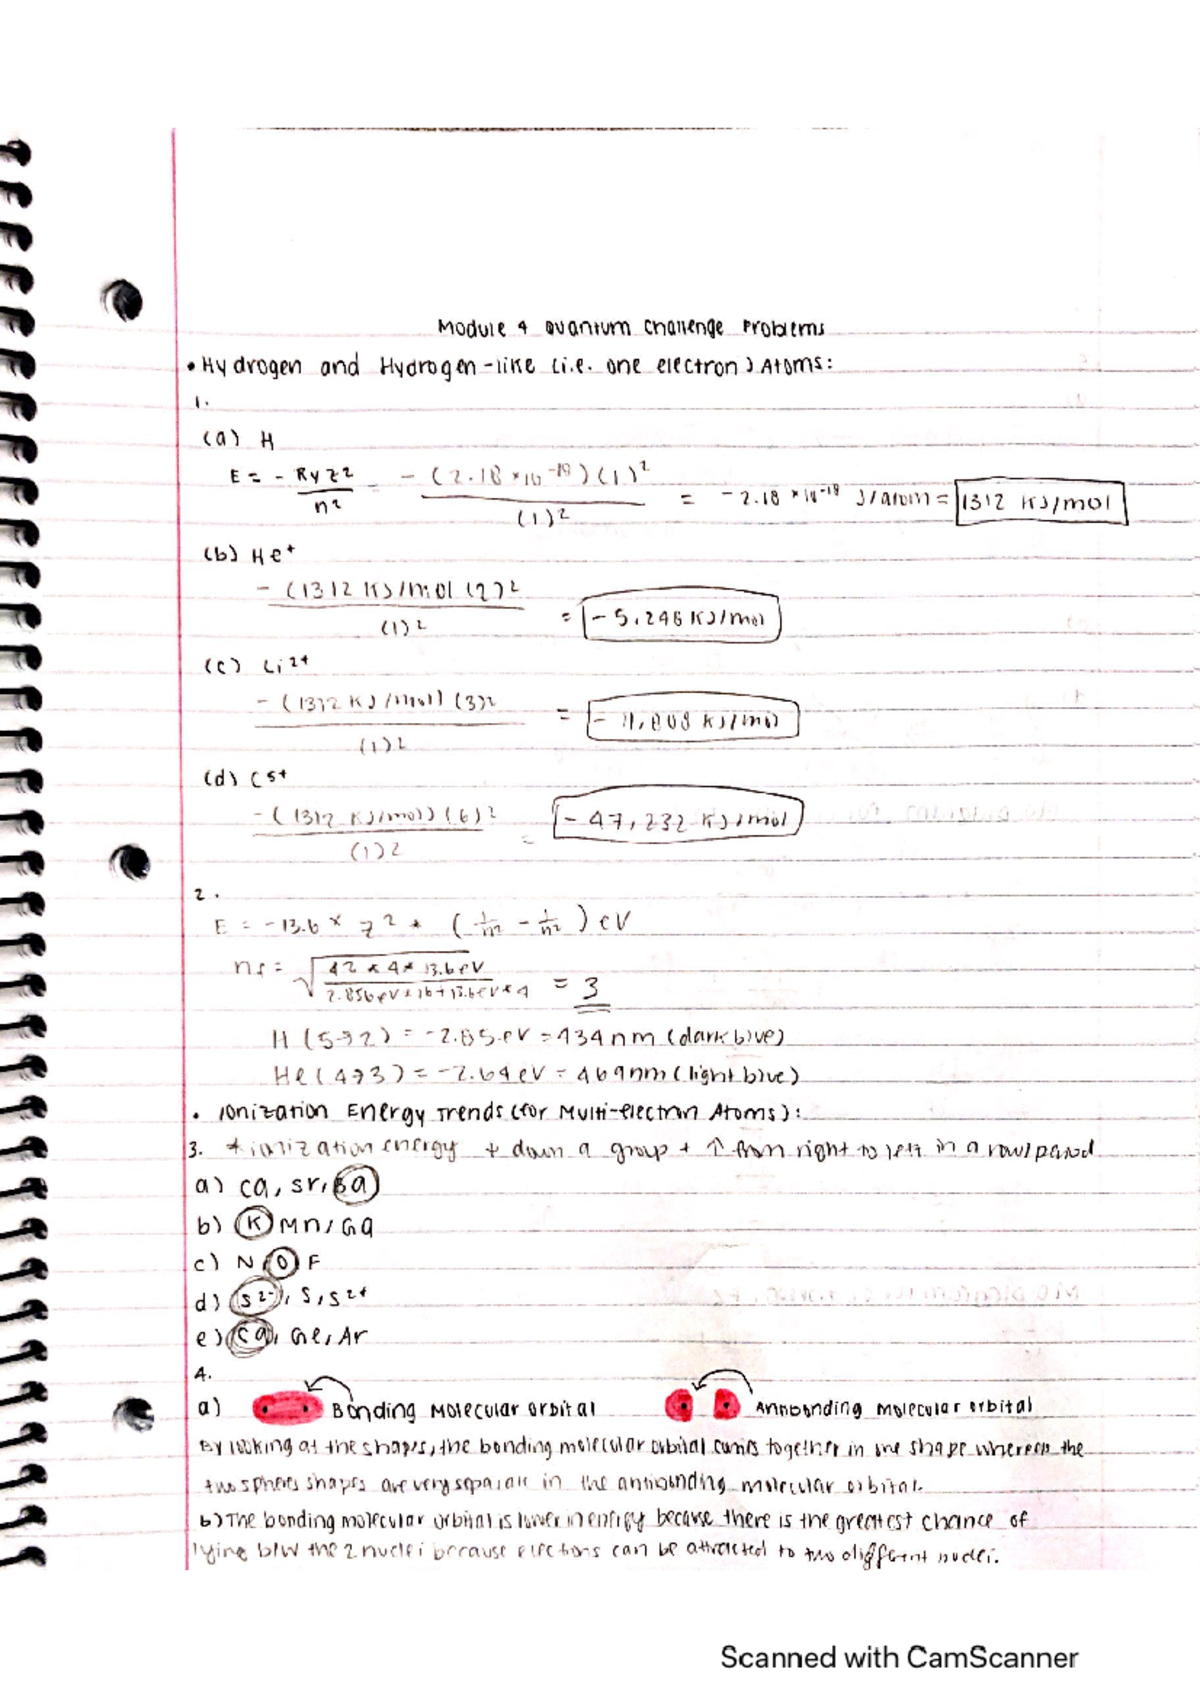 Module 4 Quantum Challenge Problems
• Hydrogen and Hydrogen-like (i.e. one electron) Atoms:
1.
(a) H
E = - Ry z² / n² - (2.18 × 10⁻¹⁸)(1)² / (1)² = - 2.18 × 10⁻¹⁸ J/atom = 1312 KJ/mol
(b) He⁺
- (1312 KJ/mol (2)² / (1)² = - 5,248 KJ/mol
(c) Li²⁺
- (1312 KJ/mol) (3)² / (1)² = - 11,808 KJ/mol
(d) C⁵⁺
- (1312 KJ/mol) (6)² / (1)² = - 47,232 KJ/mol
2.
E = -13.6 × z² * ( - ) eV
nf = √ 42 * 4 * 13.6 eV / 2.856 eV * 16 + 13.6 eV * 4 = 3
H (5→2) = -2.85 eV = 434 nm (dark blue)
He (4→3) = -2.64 eV = 469 nm (light blue)
• Ionization Energy Trends (for Multi-electron Atoms):
3. * ionization energy ↓ down a group + ↑ from right to left in a row/period
a) Ca, Sr, Ba
b) K Mn, Ga
c) N O F
d) S²⁻, S, S²⁺
e) Ca, Ge, Ar
4.
a) Bonding Molecular orbital Antibonding molecular orbital
By looking at the shapes, the bonding molecular orbital comes together in one shape whereas the
two spheres shapes are very separate in the antibonding molecular orbital.
b) The bonding molecular orbital is lower in energy because there is the greatest chance of
lying b/w the 2 nuclei because electrons can be attracted to two different nuclei.
Scanned with CamScanner